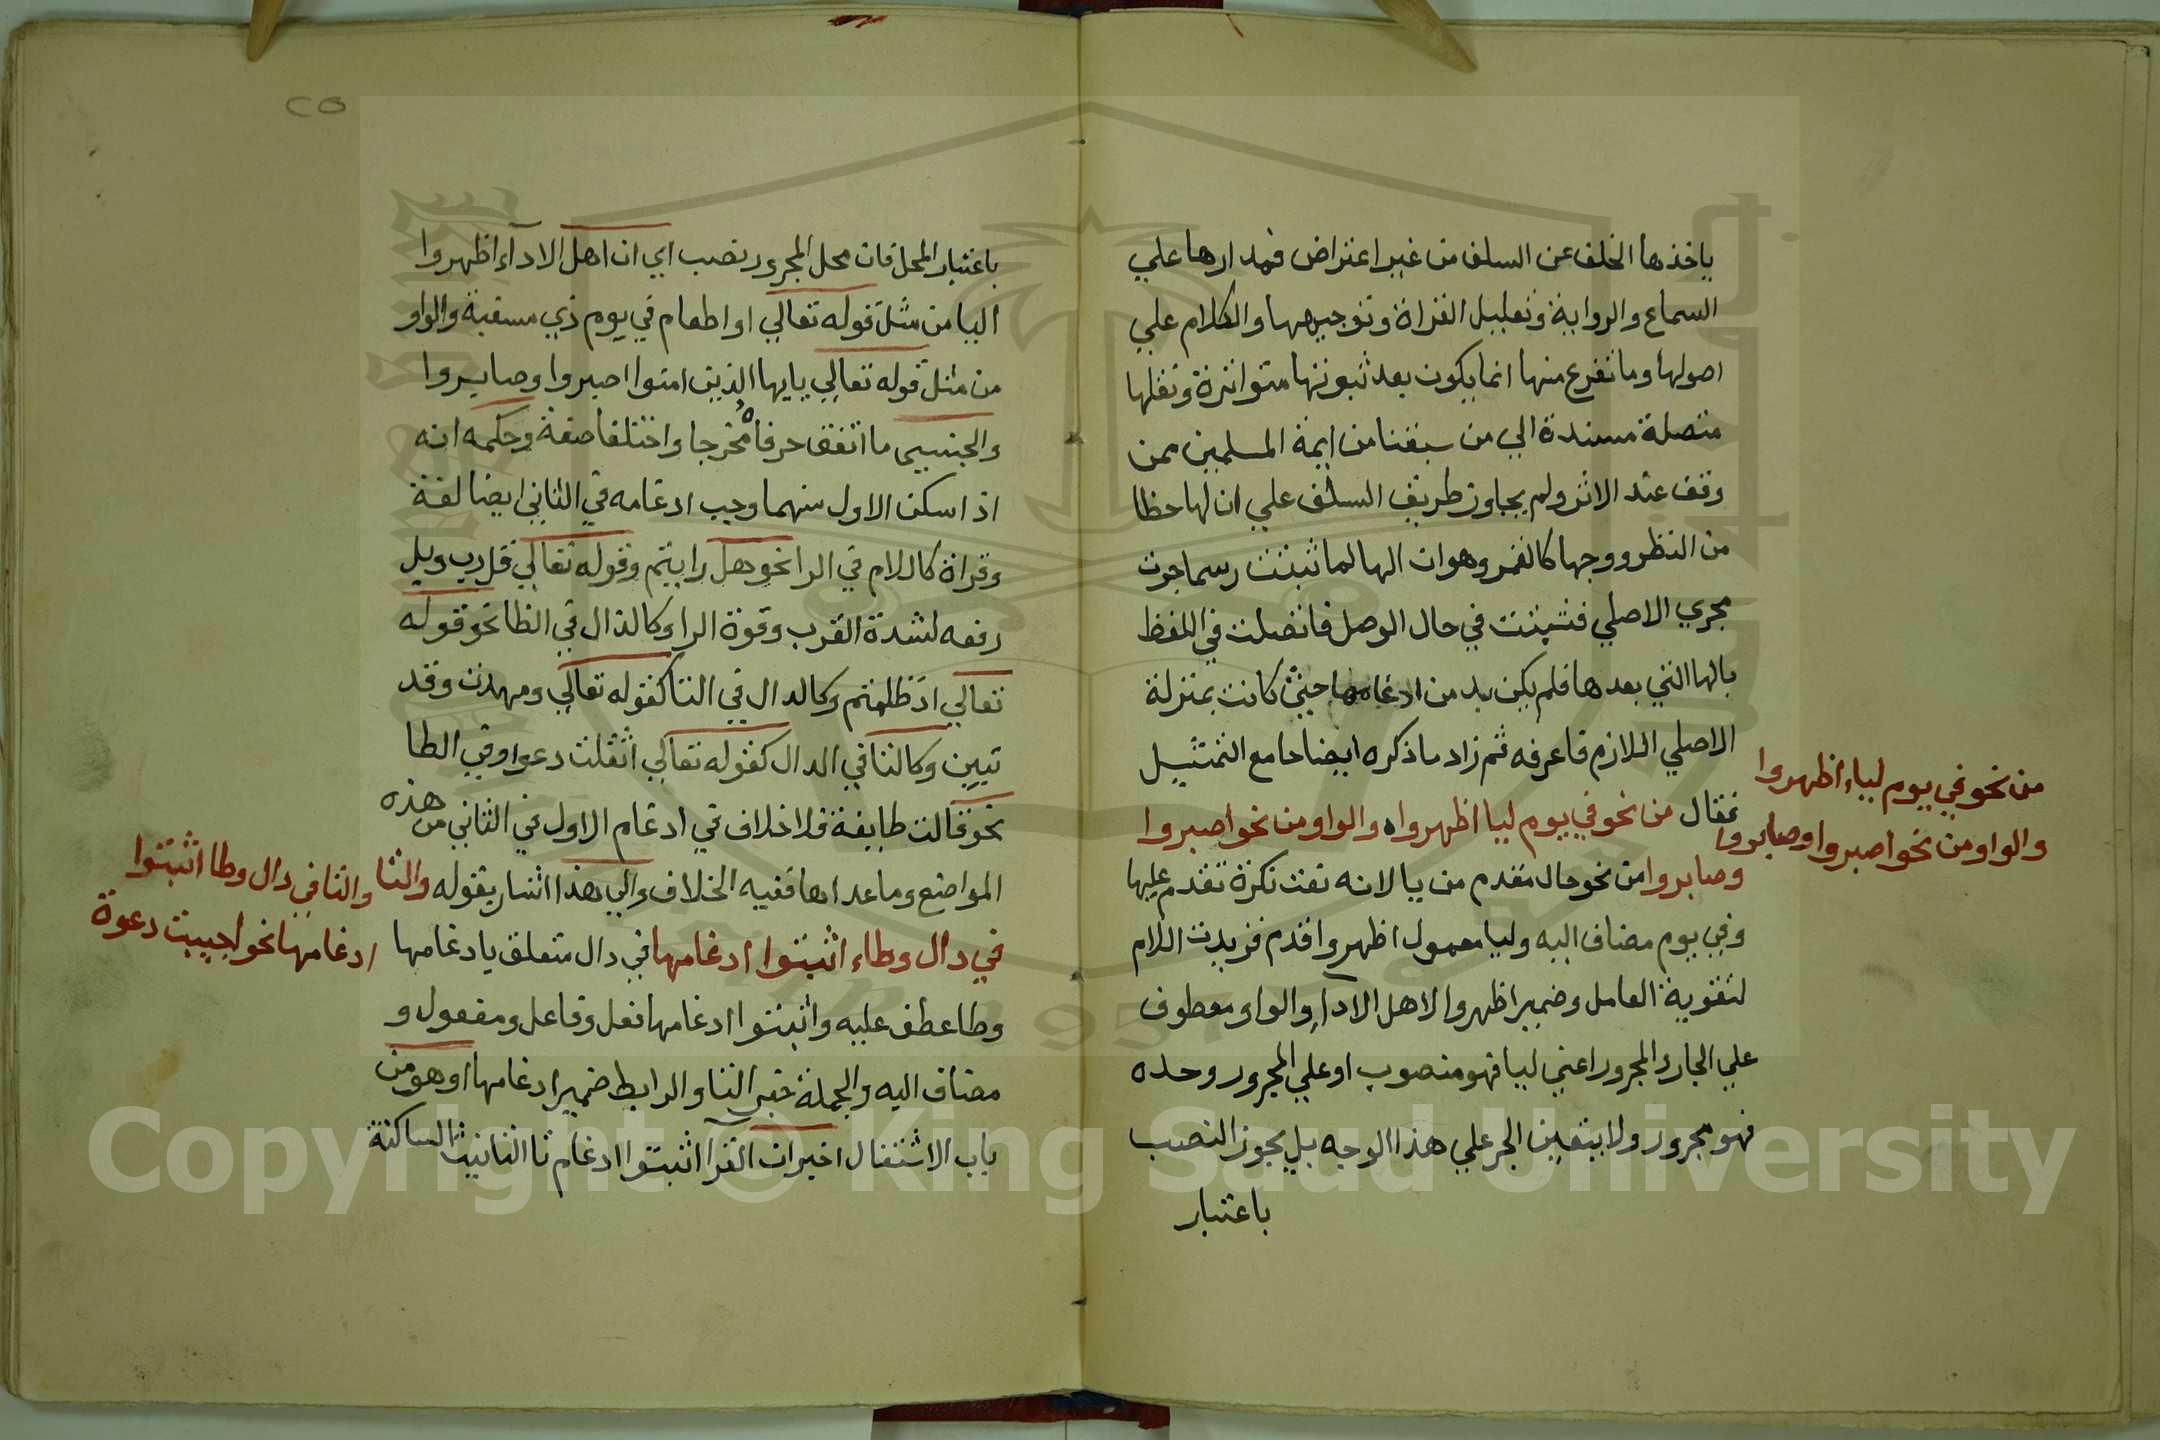 ياخذها الخلف عن السلف من غير اعتراض فمدارها علي
السماع والرواية وتعليل القراة وتوجيهها والكلام علي
اصولها وما تفرع منها انما يكون بعد ثبوتها متواترة ونقلها
متصلة مسندة الي من سبقنا من ايمة المسلمين ممن
وقف عند الاثر ولم يجاوز طريق السلف علي ان لها حظا
من النظر ووجها كالقمر وهو ان الها لما ثبتت رسما جرت
مجري الاصلي فثبتت في حال الوصل فاتصلت في اللفظ
بالها التي بعدها فلم يكن بد من ادغامها حيث كانت بمنزلة
الاصلي اللازم فاعرفه ثم زاد ما ذكره ايضاحا مع التمثيل
فقال من نحو في يوم ليا اظهرواه والواو من نحو اصبروا
وصابروا من نحو حال مقدم من يا لانه نعت نكرة تقدم عليها
وفي يوم مضاف اليه وليا معمول اظهروا قدم فزيدت اللام
لتقوية العامل وضمير اظهروا لاهل الادآء والواو معطوف
علي الجار والمجرور اعني ليا فهو منصوب او علي المجرور وحده
فهو مجرور ولا يتعين الجر علي هذا الوجه بل يجوز النصب
باعتبار
من نحو في يوم لياء اظهروا
والواو من نحو اصبروا وصابروا
باعتبار المحل فان محل المجرور نصب اي ان اهل الادآء اظهروا
اليا من مثل قوله تعالي او اطعام في يوم ذي مسغبة والواو
من مثل قوله تعالي يايها الذين امنوا اصبروا وصابروا
والجنسي ما اتفق حرفاه مخرجا واختلفا صفة وحكمه انه
اذا سكن الاول منهما وجب ادغامه في الثاني ايضا لغة
وقراة كاللام في الرا نحو هل رايتم وقوله تعالي قل رب وبل
رفعه لشدة القرب وقوة الرا وكالذال في الظا نحو قوله
تعالي اذ ظلمتم وكالدال في التا كقوله تعالي ومهدت وقد
تبين وكالتا في الدال كقوله تعالي اثقلت دعوا وفي الطا
نحو قالت طايفة فلا خلاف في ادغام الاول في الثاني من هذه
المواضع وما عداها ففيه الخلاف والي هذا اشار بقوله والتا
في دال وطاء اثبتوا ادغامها في دال متعلق بادغامها
وطا عطف عليه واثبتوا ادغامها فعل وفاعل ومفعول و
مضاف اليه والجملة خبر التا والرابط ضمير ادغامها او هو من
باب الاشتغال اخبر ان القرا اثبتوا ادغام تا التانيث الساكنة
والتا في دال وطا اثبتوا
ادغامها نحو اجيبت دعوة
٢٥
Copyright © King Saud University
1957